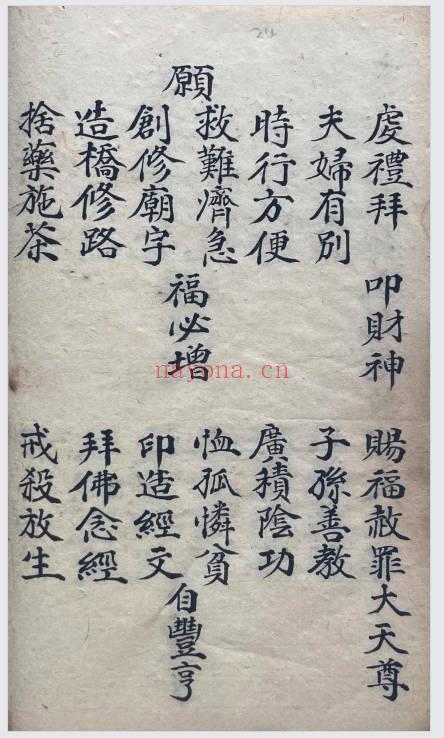 24
虔禮拜 叩財神 賜福赦罪大天尊
夫婦有別 子孫善教
時行方便 廣積陰功
救難濟急 恤孤憐貧
願 福必增 自豐亨
創修廟字 印造經文
造橋修路 拜佛念經
捨藥施茶 戒殺放生
nayona.cn